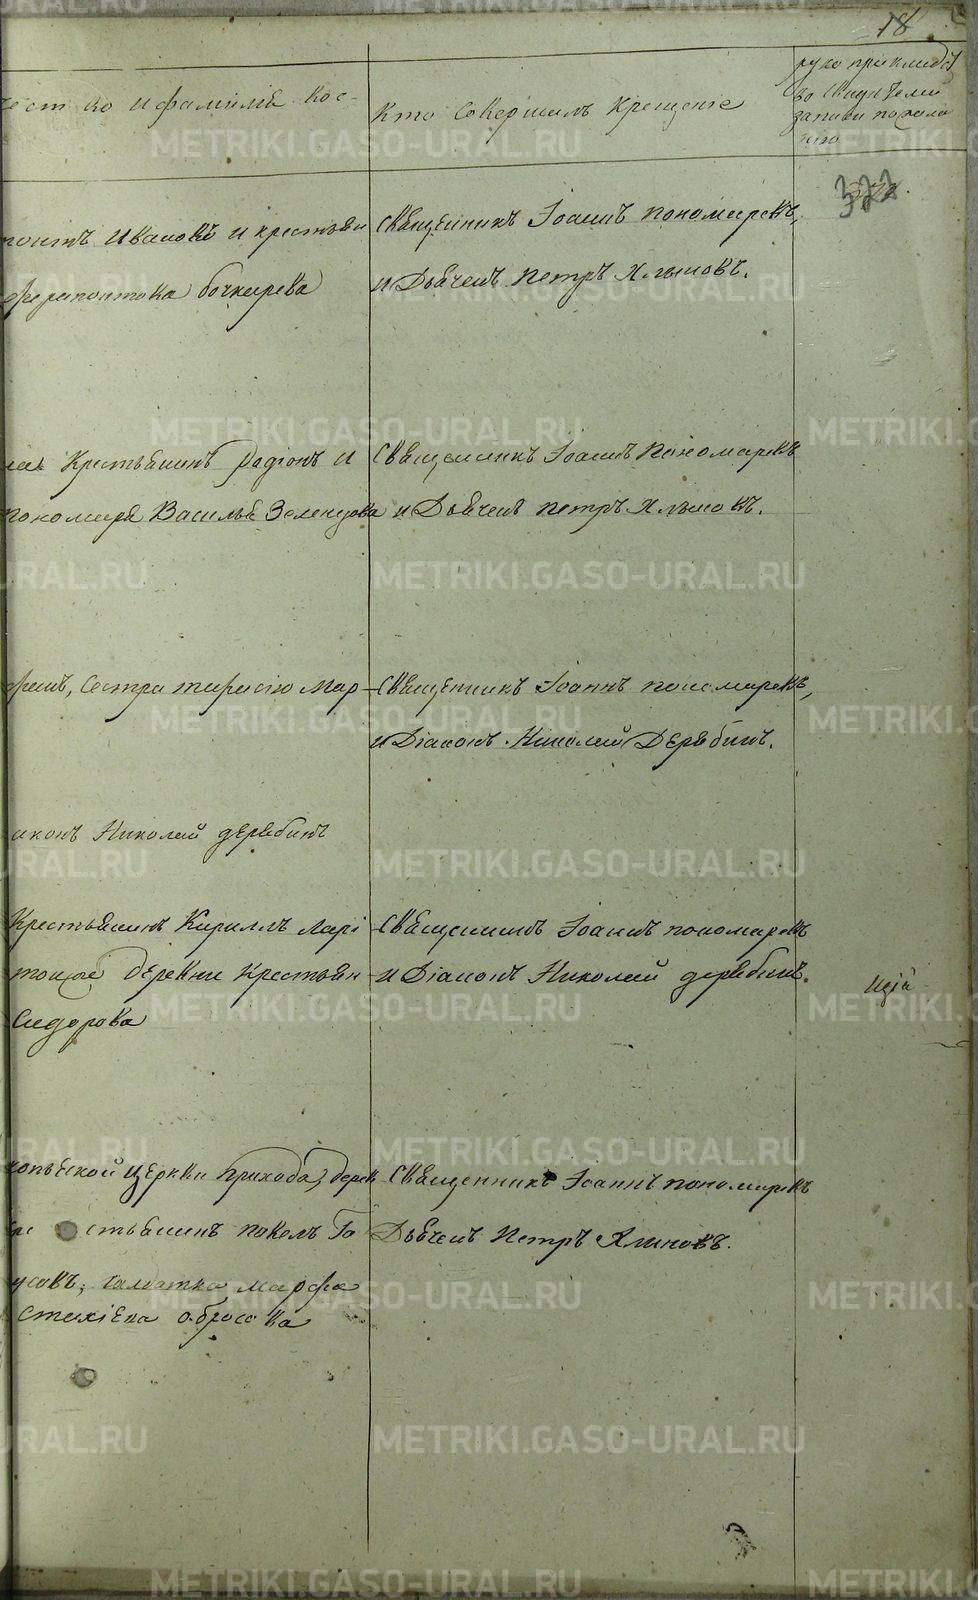 18
ест во и фамилія вос-
Кто Совершилъ Крещеніе
руко прикладст
во Свидѣтелей
записи по жела
нію
322.
Ивановъ и крестьян
бочкирева
Священникъ Іоаннъ пономаревъ,
и Дьячекъ Петръ Ялыновъ.
Крестьянинъ Радіонъ и
пономаря Василья Зеленцова
Священникъ Іоаннъ Пономаревъ
и Дьячекъ петръ Ялыновъ.
Сестра тарасію Мар
Священникъ Іоаннъ пономаревъ,
и Діаконъ Николай Дерябинъ.
аконъ Николай дерябинъ
Крестьянинъ Кирилъ Лари
тойже деревни Крестьян
Сидорова
Священникъ Іоаннъ пономаревъ
и Діаконъ Николай дерябинъ.
ицій
Церкви прихода, дерев
стьянинъ
усовъ,
марфа
Священникъ Іоаннъ пономаревъ
Дьячекъ Петръ Ялыновъ.
METRIKI.GASO-URAL.RU